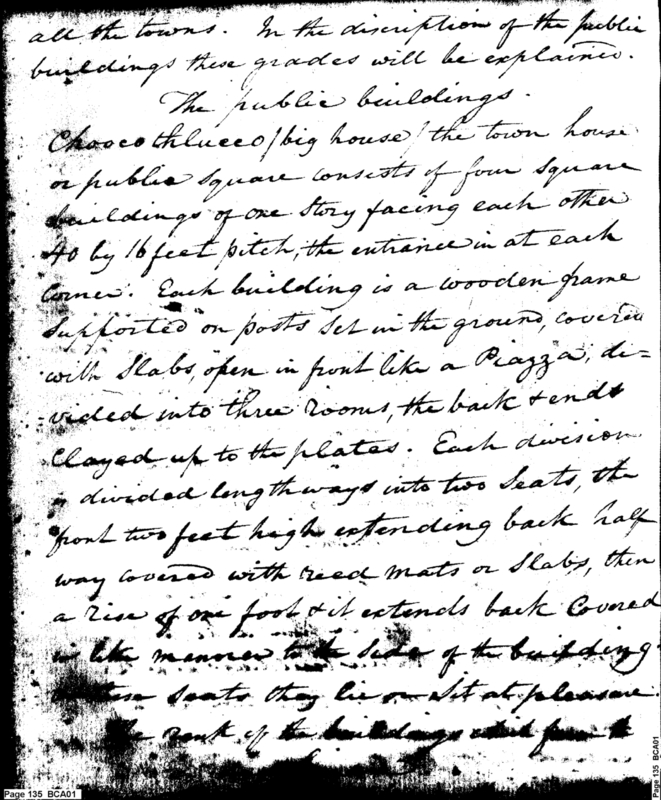 all the towns. In the discription of the public
buildings these grades will be explained.
The public buildings.
Choocothlucco /big house/ the town house
or public square consists of four square
buildings of one Story facing each other
40 by 16 feet pitch, the entrance in at each
corner. Each building is a wooden frame
Supported on posts Set in the ground, covered
with Slabs, open in front like a Piazza, di=
=vided into three rooms, the back & ends
Clayed up to the plates. Each division
is divided length ways into two Seats, the
front two feet high extending back half
way covered with reed mats or Slabs, then
a rise of one foot & it extends back Covered
in like manner to the Side of the building.
these Seats they lie or Sit at pleasure
The rank of the buildings which form the
Page 135 BCA01
Page 135 BCA01